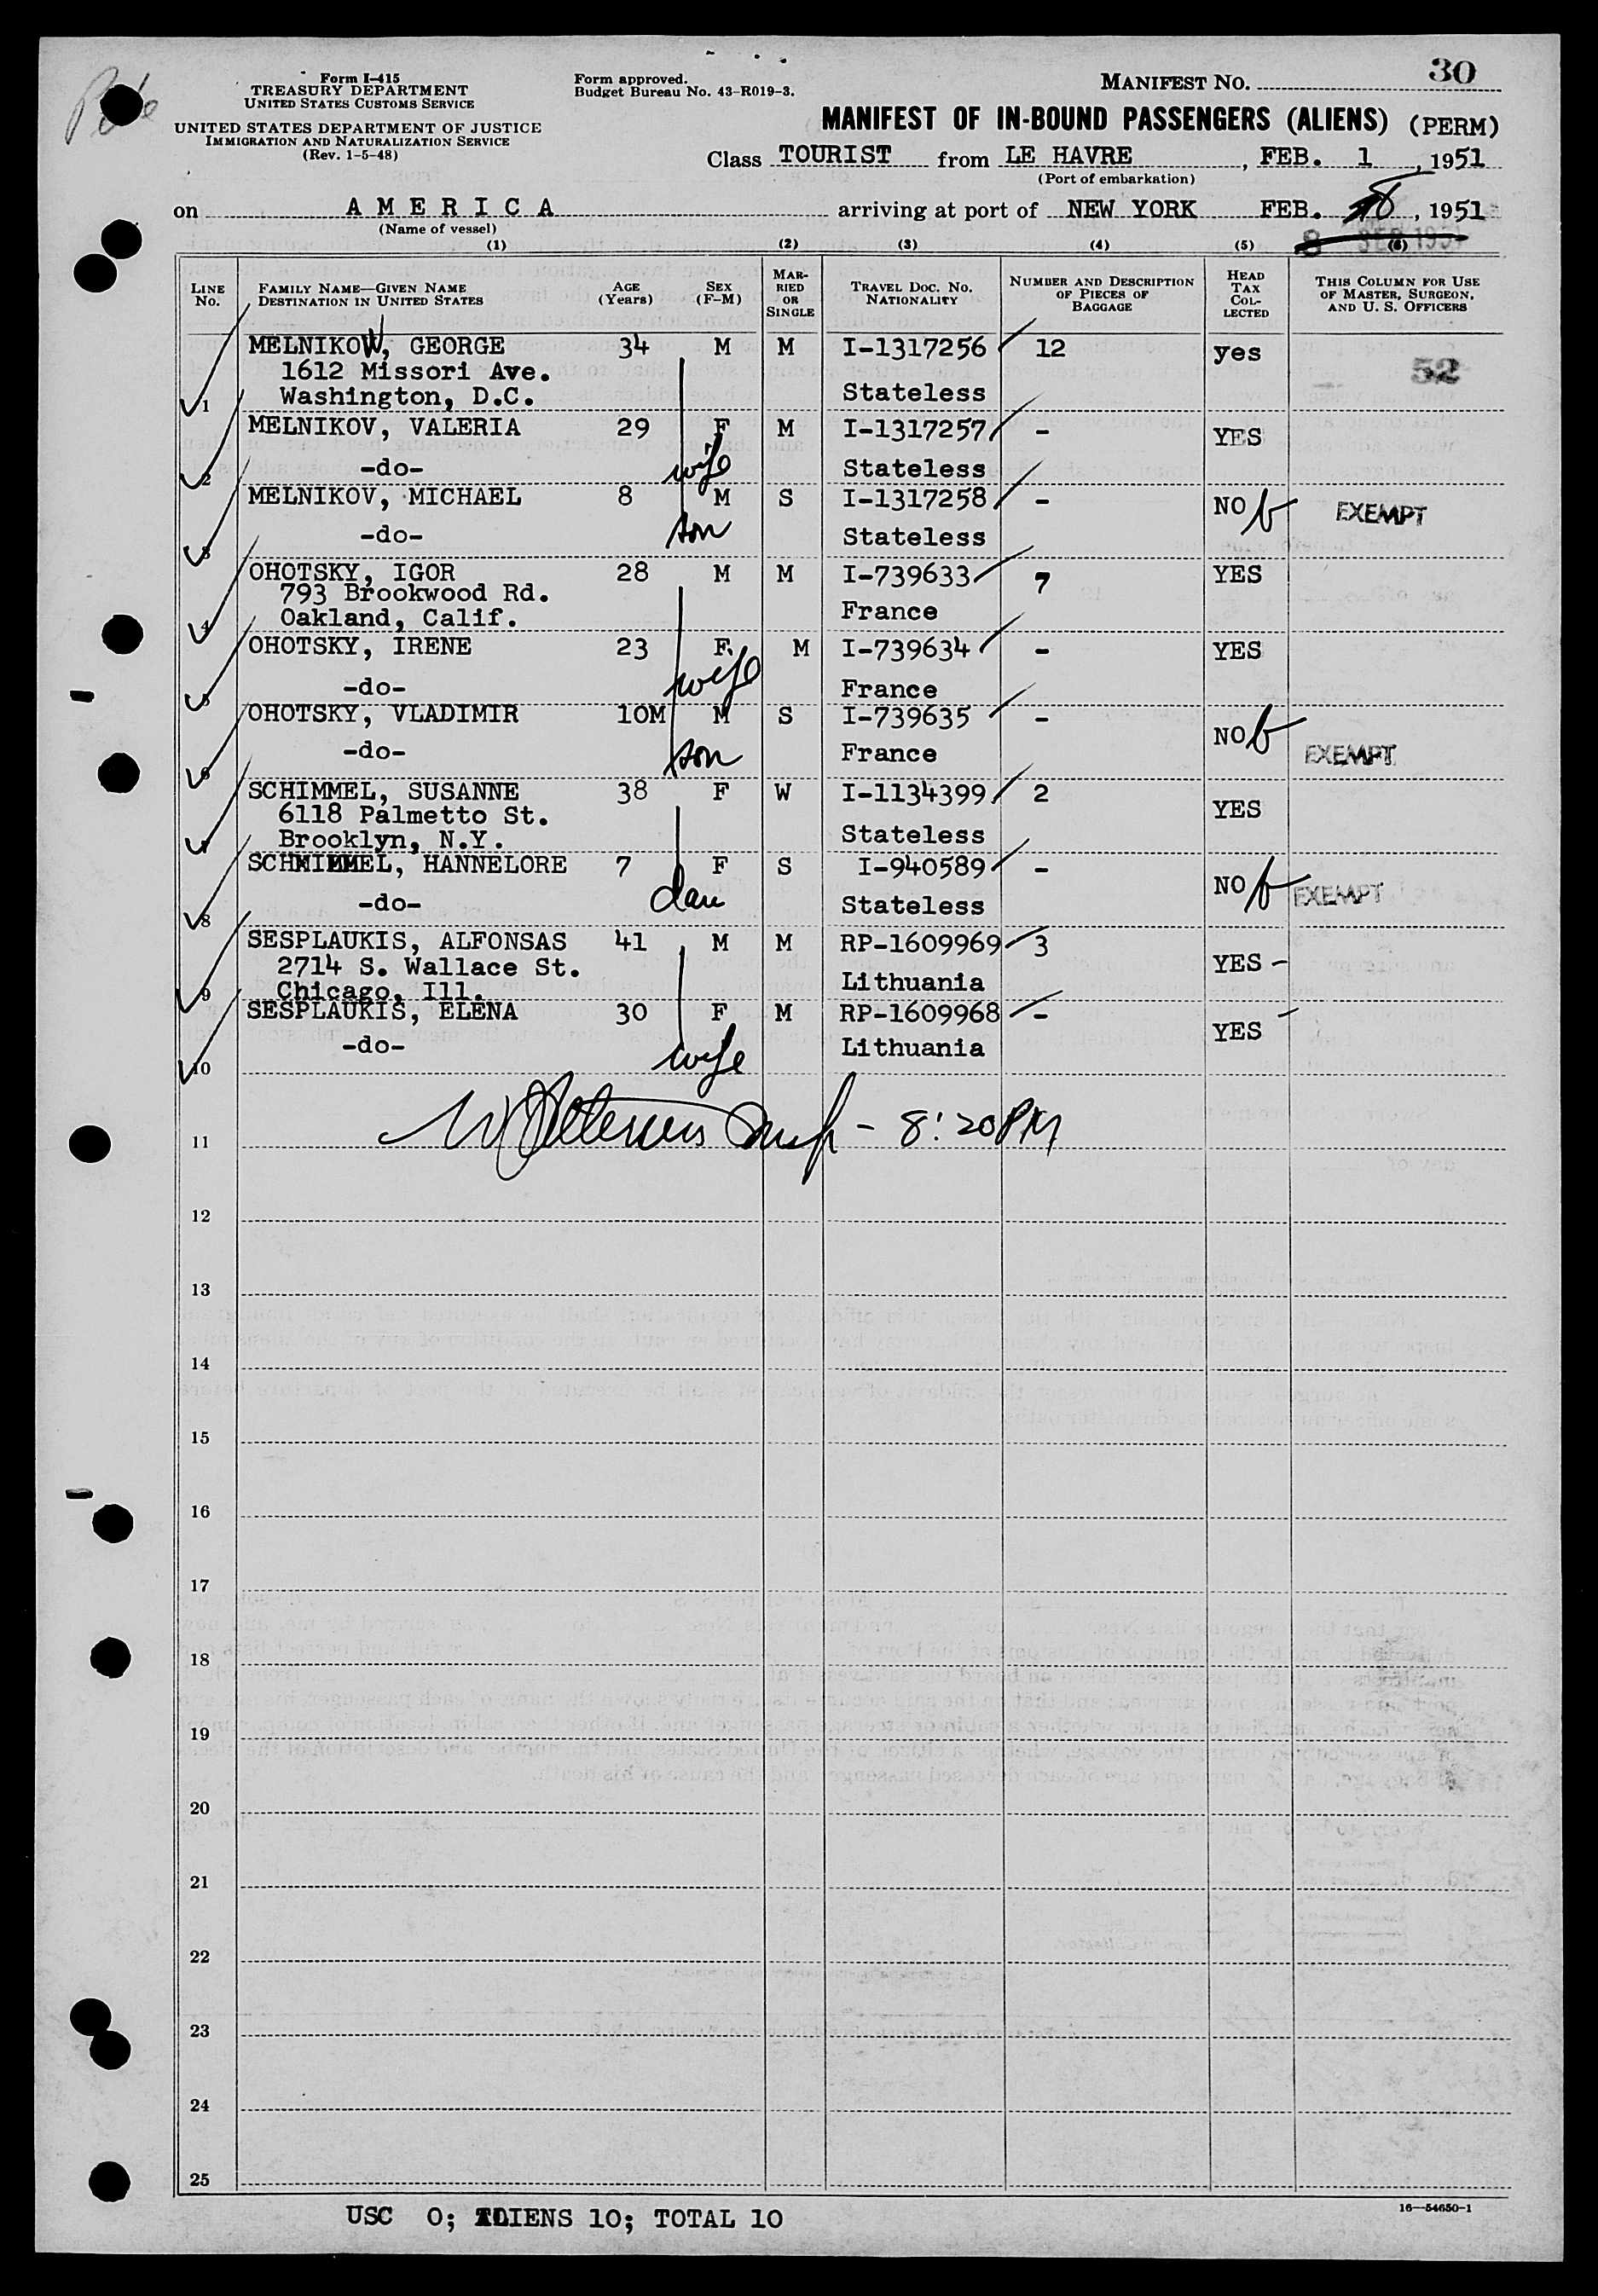 Form I-415
TREASURY DEPARTMENT
UNITED STATES CUSTOMS SERVICE
UNITED STATES DEPARTMENT OF JUSTICE
IMMIGRATION AND NATURALIZATION SERVICE
(Rev. 1-5-48)
Form approved.
Budget Bureau No. 43-R019-3.
MANIFEST NO. 30
MANIFEST OF IN-BOUND PASSENGERS (ALIENS) (PERM)
Class TOURIST from LE HAVRE, FEB. 1, 1951
(Port of embarkation)
on AMERICA arriving at port of NEW YORK FEB. 8, 1951
(Name of vessel)
(1) (2) (3) (4) (5) (6)
LINE No. FAMILY NAME—GIVEN NAME DESTINATION IN UNITED STATES AGE (Years) SEX (F-M) MARRIED OR SINGLE TRAVEL DOC. NO. NATIONALITY NUMBER AND DESCRIPTION OF PIECES OF BAGGAGE HEAD TAX COLLECTED THIS COLUMN FOR USE OF MASTER, SURGEON, AND U. S. OFFICERS
MELNIKOW, GEORGE 34 M M I-1317256 12 yes 52
1612 Missori Ave.
1 Washington, D.C. Stateless
MELNIKOV, VALERIA 29 F M I-1317257 - YES
2 -do- wife Stateless
MELNIKOV, MICHAEL 8 M S I-1317258 - NO EXEMPT
3 -do- son Stateless
OHOTSKY, IGOR 28 M M I-739633 7 YES
793 Brookwood Rd.
4 Oakland, Calif. France
OHOTSKY, IRENE 23 F. M I-739634 - YES
5 -do- wife France
OHOTSKY, VLADIMIR 10M M S I-739635 - NO EXEMPT
6 -do- son France
SCHIMMEL, SUSANNE 38 F W I-1134399 2 YES
6118 Palmetto St.
7 Brooklyn, N.Y. Stateless
SCHIMMEL, HANNELORE 7 F S I-940589 - NO EXEMPT
8 -do- dau Stateless
SESPLAUKIS, ALFONSAS 41 M M RP-1609969 3 YES -
2714 S. Wallace St.
9 Chicago, Ill. Lithuania
SESPLAUKIS, ELENA 30 F M RP-1609968 - YES -
10 -do- wife Lithuania
11 - 8:20PM
12
13
14
15
16
17
18
19
20
21
22
23
24
25
16—54650-1
USC 0; ALIENS 10; TOTAL 10